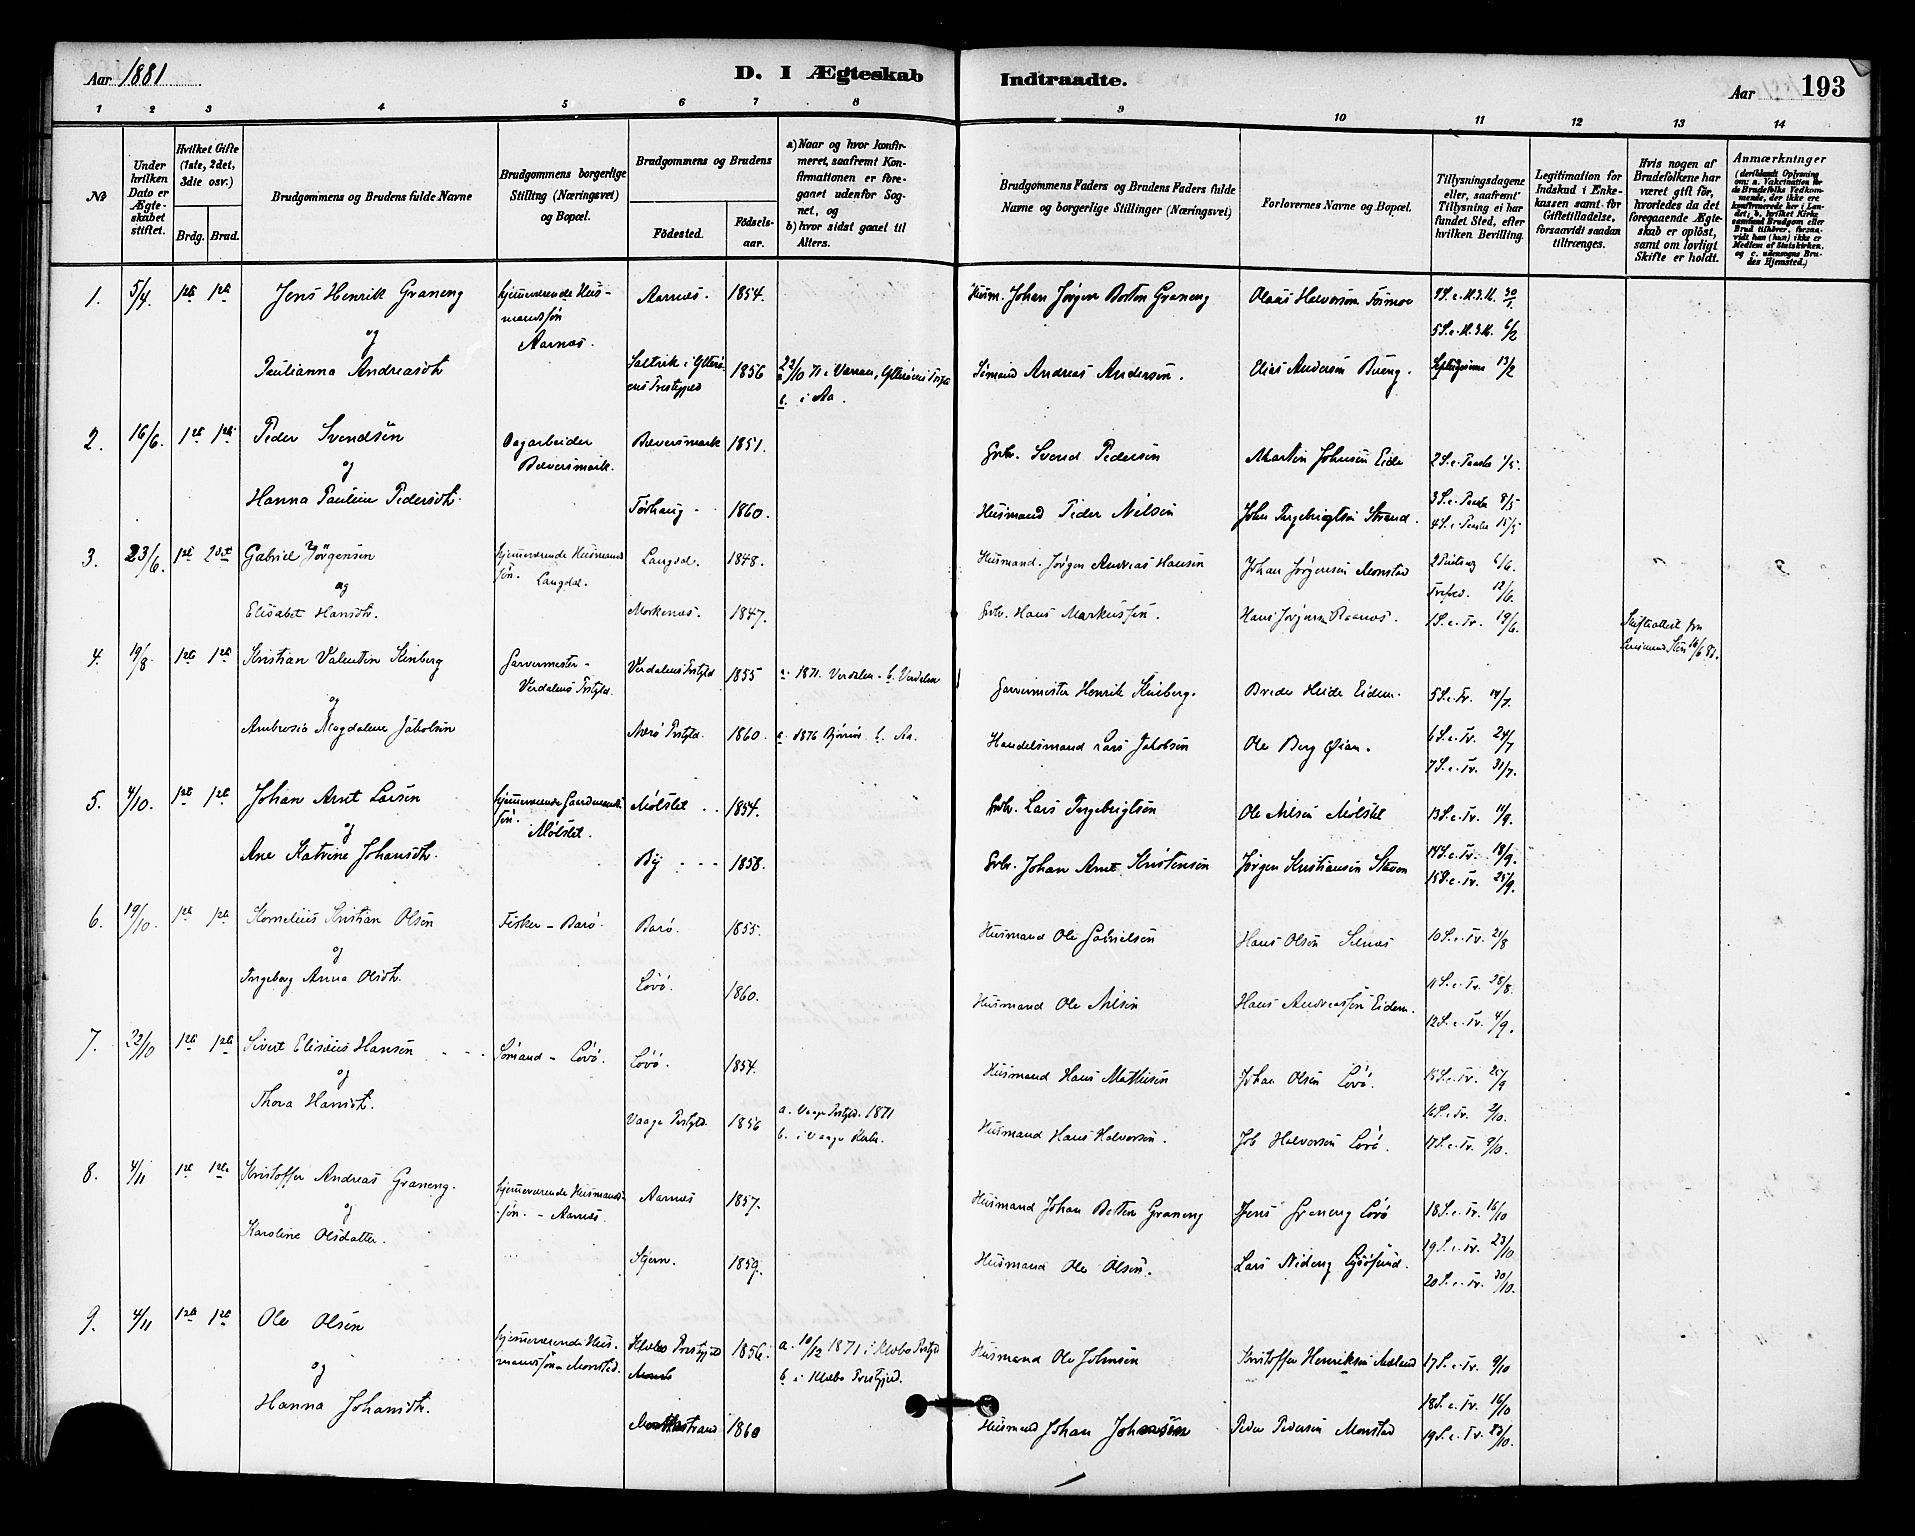 Aar 1881
D. I Ægteskab
Indtraadte.
Aar 193
1 2 3 4 5 6 7 8 9 10 11 12 13 14
№
Under hvilken Dato er Ægteskabet stiftet.
Hvilket Gifte (1ste, 2det, 3die osv.)
Brdg. Brud.
Brudgommens og Brudens fulde Navne
Brudgommens borgerlige Stilling (Næringsvei) og Bopæl.
Brudgommens og Brudens
Födested. Födselsaar.
a) Naar og hvor konfirmeret, saafremt Konfirmationen er foregaaet udenfor Sognet, og
b) hvor sidst gaaet til Alters.
Brudgommens Faders og Brudens Faders fulde Navne og borgerlige Stillinger (Næringsvei)
Forlovernes Navne og Bopæl.
Tillysningsdagene eller, saafremt Tillysning ei har fundet Sted, efter hvilken Bevilling.
Legitimation for Indskud i Enkekassen samt for Giftetilladelse, forsaavidt saadan tiltrænges.
Hvis nogen af Brudefolkene har været gift för, hvorledes da det foregaaende Ægteskab er oplöst, samt om lovligt Skifte er holdt.
Anmærkninger
(deriblandt Oplysning om: a. Vakcination for de Brudefolks Vedkommende, der ikke ere konfirmerede her i Landet; b. hvilket Kirkesamfund Brudgom eller Brud tilhører, forsaavidt han (hun) ikke er Medlem af Statskirken, og c. udensogns Brudes Hjemsted.)
1. 5/4 1ste 1ste Jens Henrik Graneng hjemmeværende Husmandssøn Aarnæs. Aarnæs. 1854. Husm. Johan Jørgen Botten Graneng Olaus Halvorsen Formoe 4 S. e. H. 3 K. 30/1
og 5 S. e. H. 3 K. 6/2
Paulianna Andreasdtr. Saltvik i Ytterøens Prestegjeld 1856 i Aa. Sömand Andreas Andersen. Elias Andersen Bueng. Septuagesima 13/2
2. 16/6. 1ste 1ste Peder Svendsön Dagarbeider Bæversmark. Bæversmark 1851. Grbr. Svend Pedersen Martin Johnsen Eide 2 S. e. Paaske 1/5.
og 3 S. e. Paaske 8/5
Hanna Pauline Pedersdtr. Torhaug 1860. Husmand Peder Nilsen John Ingebrigtsen Strand. 4 S. e. Paaske 15/5
3. 23/6. 1ste 2det Gabriel Jørgensen hjemmeværende Husmandssøn. Langdal. Langdal. 1848. Husmand. Jørgen Andreas Hansen Johan Jørgensen Monstad 2 Pintsdag 6/6.
og Trefold. 12/6.
Elisabet Hansdtr. Morkenæs. 1847. Grbr. Hans Markussen. Hans Jørgensen 1 S. e. Tr. 19/6. Skifteattest fra 16/6 81.
4. 19/8. 1ste 1ste Kristian Valentin Kinberg Garvermester - Verdalens Prstgld. Verdalens Prstgld 1855 a. 1871. Verdalen - b. Verdalen Garvermester Henrik Kinberg. Breder Heide Eidem. 5 S. e. Tr. 17/7.
og 6 S. e. Tr. 24/7
Ambrosia Magdalene Jakobsen Nærö Prstgld. 1860. a. 1876 Björnör b. Aa. Handelsmand Lars Jakobsen Ole Berg Öian. 7 S. e. Tr. 31/7.
5. 4/10. 1ste 1ste Johan Arnt Larsen hjemmeværende Gaardmandssøn. Mölslet. Mölslet 1854. Grbr. Lars Ingebrigtsen Ole Nilsen Mölslet 13 S. e. Tr. 11/9.
og 14 S. e. Tr. 18/9.
Ane Katrine Johansdtr. By 1858. Grbr. Johan Arnt Kristensen Jørgen Kristiansen Staven 15 S. e. Tr. 25/9.
6. 19/10. 1ste 1ste Kornelius Kristian Olsen Fisker - Barö. Barö. 1855. Husmand Ole Gabrielsen Hans Olsen Selnæs 10 S. e. Tr. 21/8
og 11 S. e. Tr. 28/8.
Ingeborg Anna Olsdtr. Lövö. 1860. Husmand Ole Nilsen Hans Andreassen Eidem. 12 S. e. Tr. 4/9.
7. 22/10 1ste 1ste Sivert Eliseus Hansen Sömand - Lövö. Lövö. 1854. Husmand Hans Mathisen Johan Olsen Lövö. 15 S. e. Tr. 25/9
og 16 S. e. Tr. 2/10.
Thora Hansdtr. Vaage Prstgld. 1856 a. Vaage Prstgld. 1871 b. i Vaage Kirke. Husmand Hans Halvorsen. Job Halvorsen Lövö. 17 S. e. Tr. 9/10.
8. 4/11 1ste 1ste Kristoffer Andreas Graneng. hjemmeværende Husmandssøn. - Aarnæs. Aarnæs 1857. Husmand Johan Botten Graneng Jens Graneng Lövö 18 S. e. Tr. 16/10
og 19 S. e. Tr. 23/10
Karoline Olsdatter. Stjern. 1859. Husmand Ole Olsen. Lars Nideng 20 S. e. Tr. 30/10.
9. 4/11 1ste 1ste Ole Olsen hjemmeværende Husmandssön Monstad. Klæbo Prestgjeld 1856. a. 10/12 1871 i Klæbo Prstgjd b. i Klæbo Prestgjeld. Husmand Ole Johnsen Kristoffer Henriksen Mæland 17 S. e. Tr. 9/10
og 18 S. e. Tr. 16/10
Hanna Johansdtr. 1860 Husmand Johan Johnsen Peder Pedersen Monstad 19 S. e. Tr. 23/10.